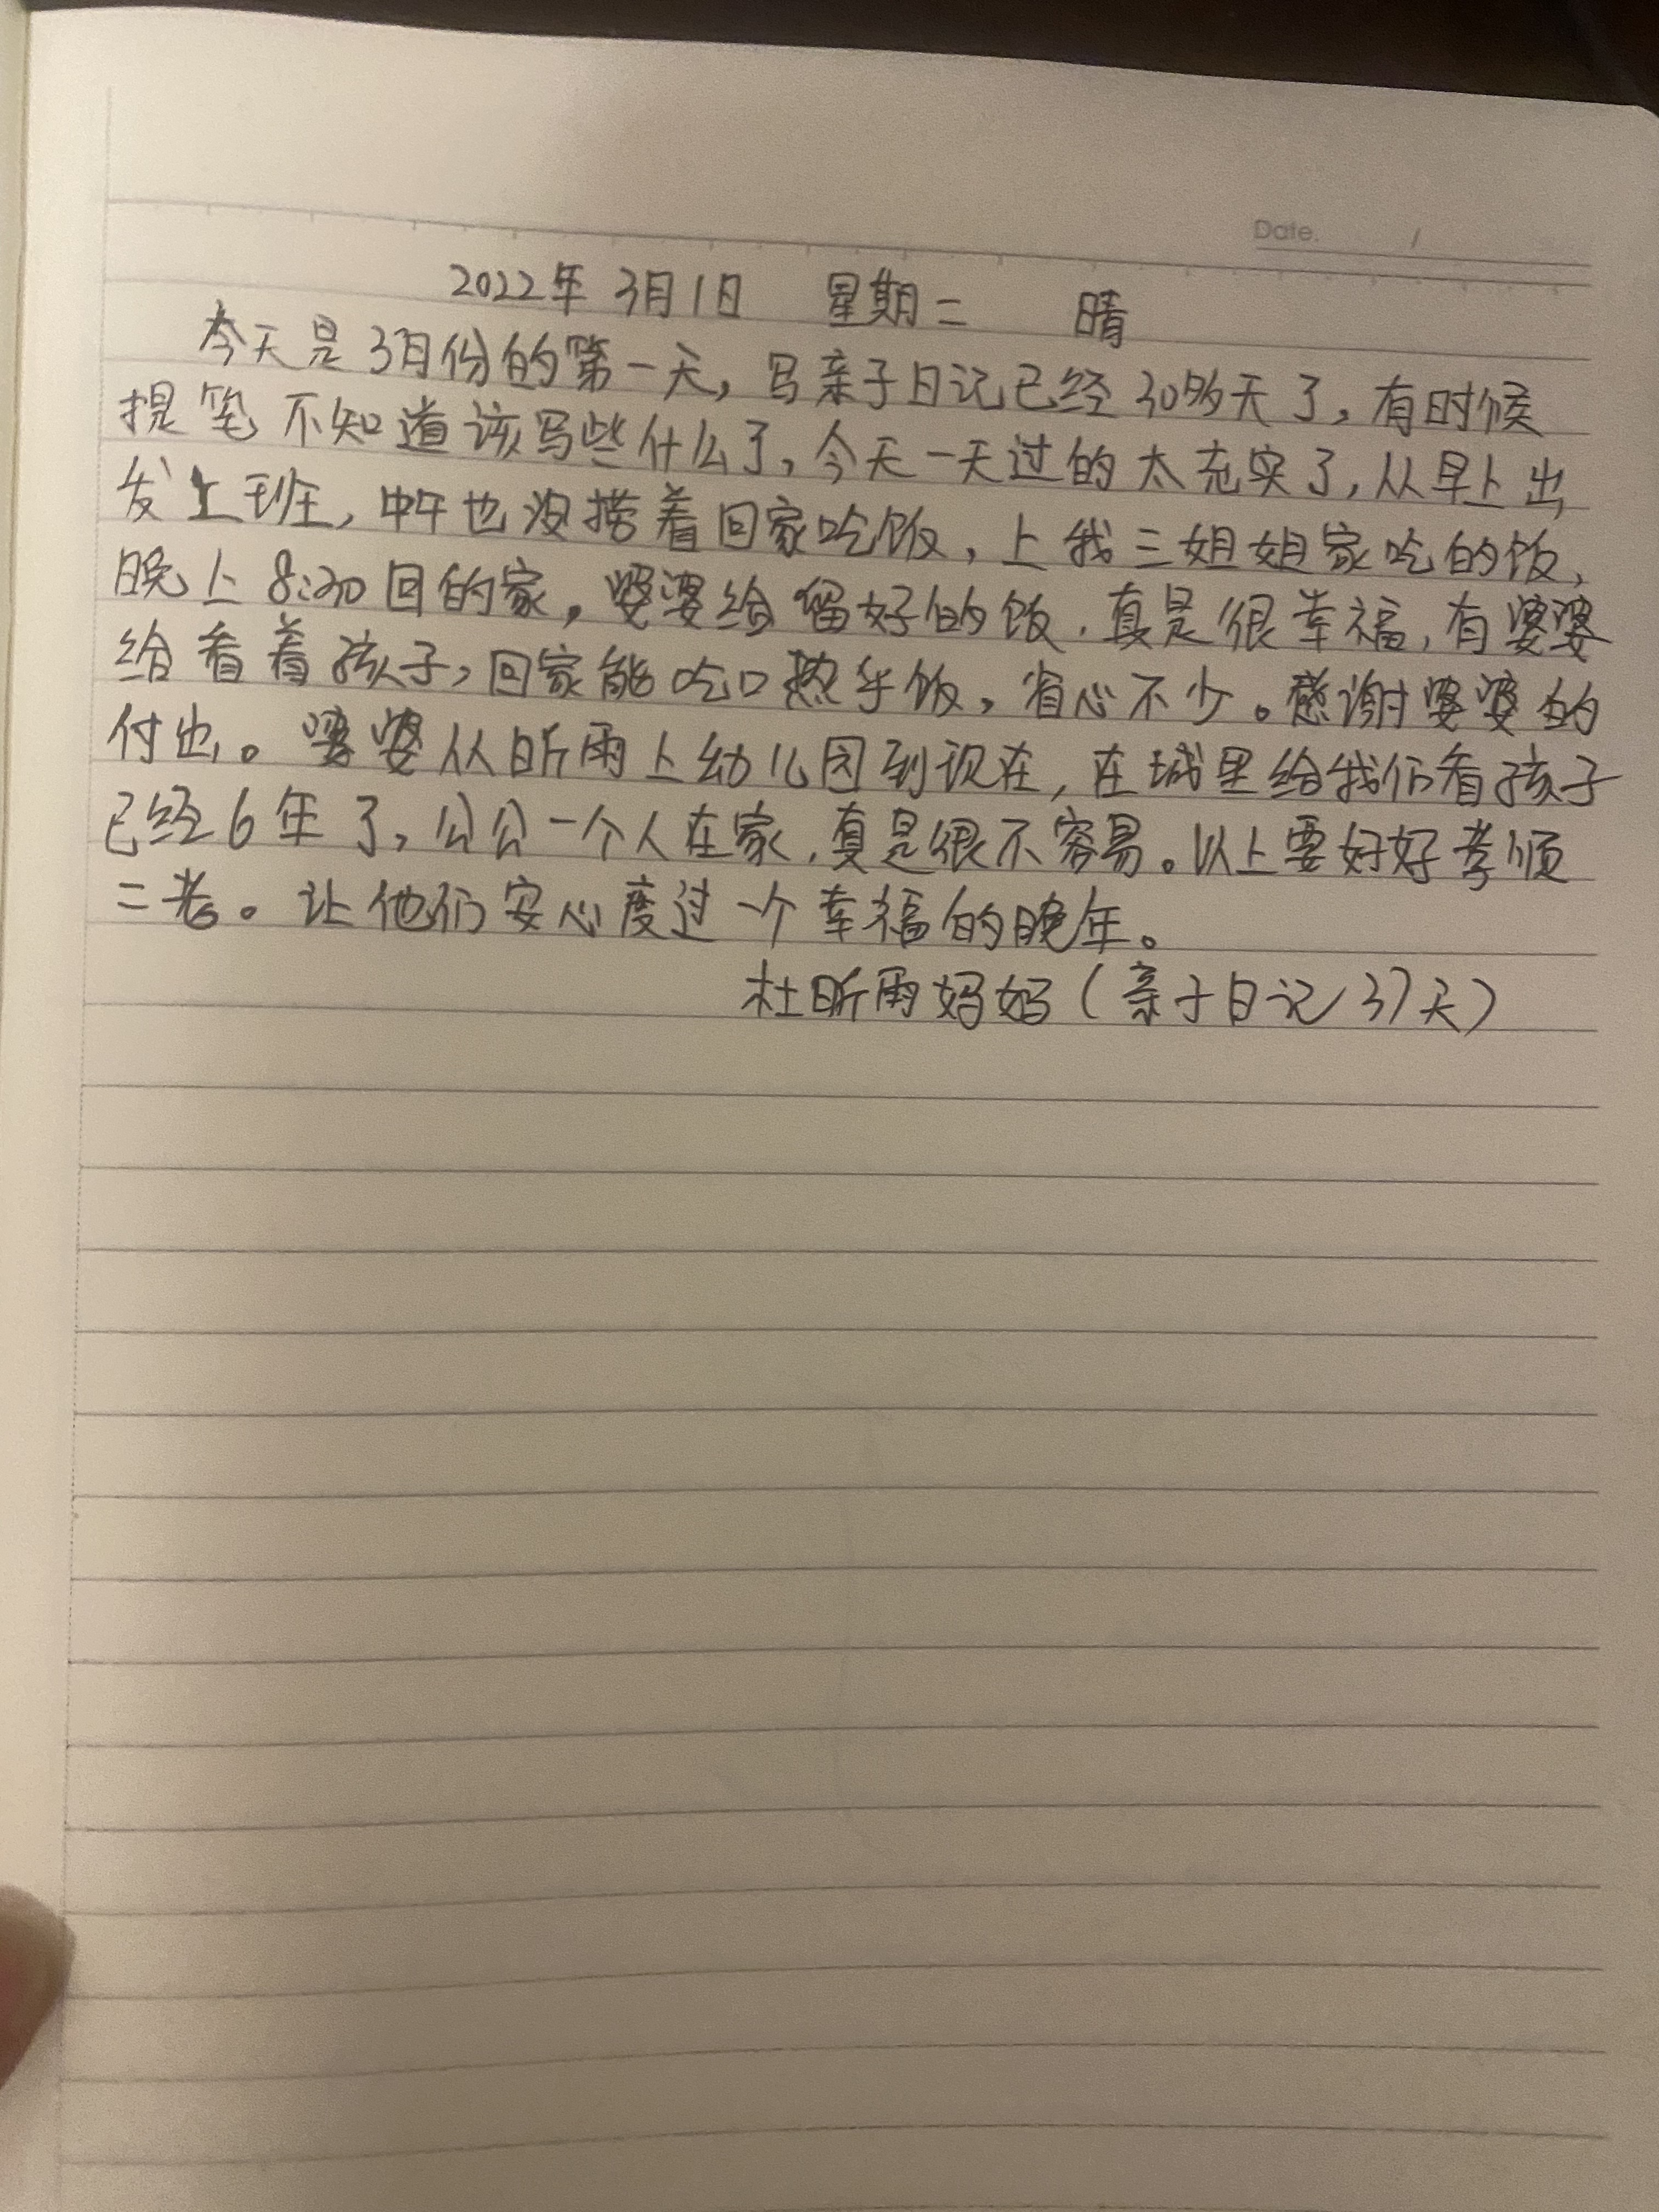 Date. /
2022年 3月1日 星期二 晴
今天是3月份的第一天，写亲子日记已经30多天了，有时候
提笔不知道该写些什么了，今天一天过的太充实了，从早上出
发上班，中午也没捞着回家吃饭，上我三姐姐家吃的饭，
晚上8:30回的家，婆婆给留好的饭，真是很幸福，有婆婆
给看着孩子，回家能吃口热乎饭，省心不少。感谢婆婆的
付出。婆婆从昕雨上幼儿园到现在，在城里给我们看孩子
已经6年了，公公一个人在家，真是很不容易。以上要好好孝顺
二老。让他们安心度过一个幸福的晚年。
杜昕雨妈妈（亲子日记37天）